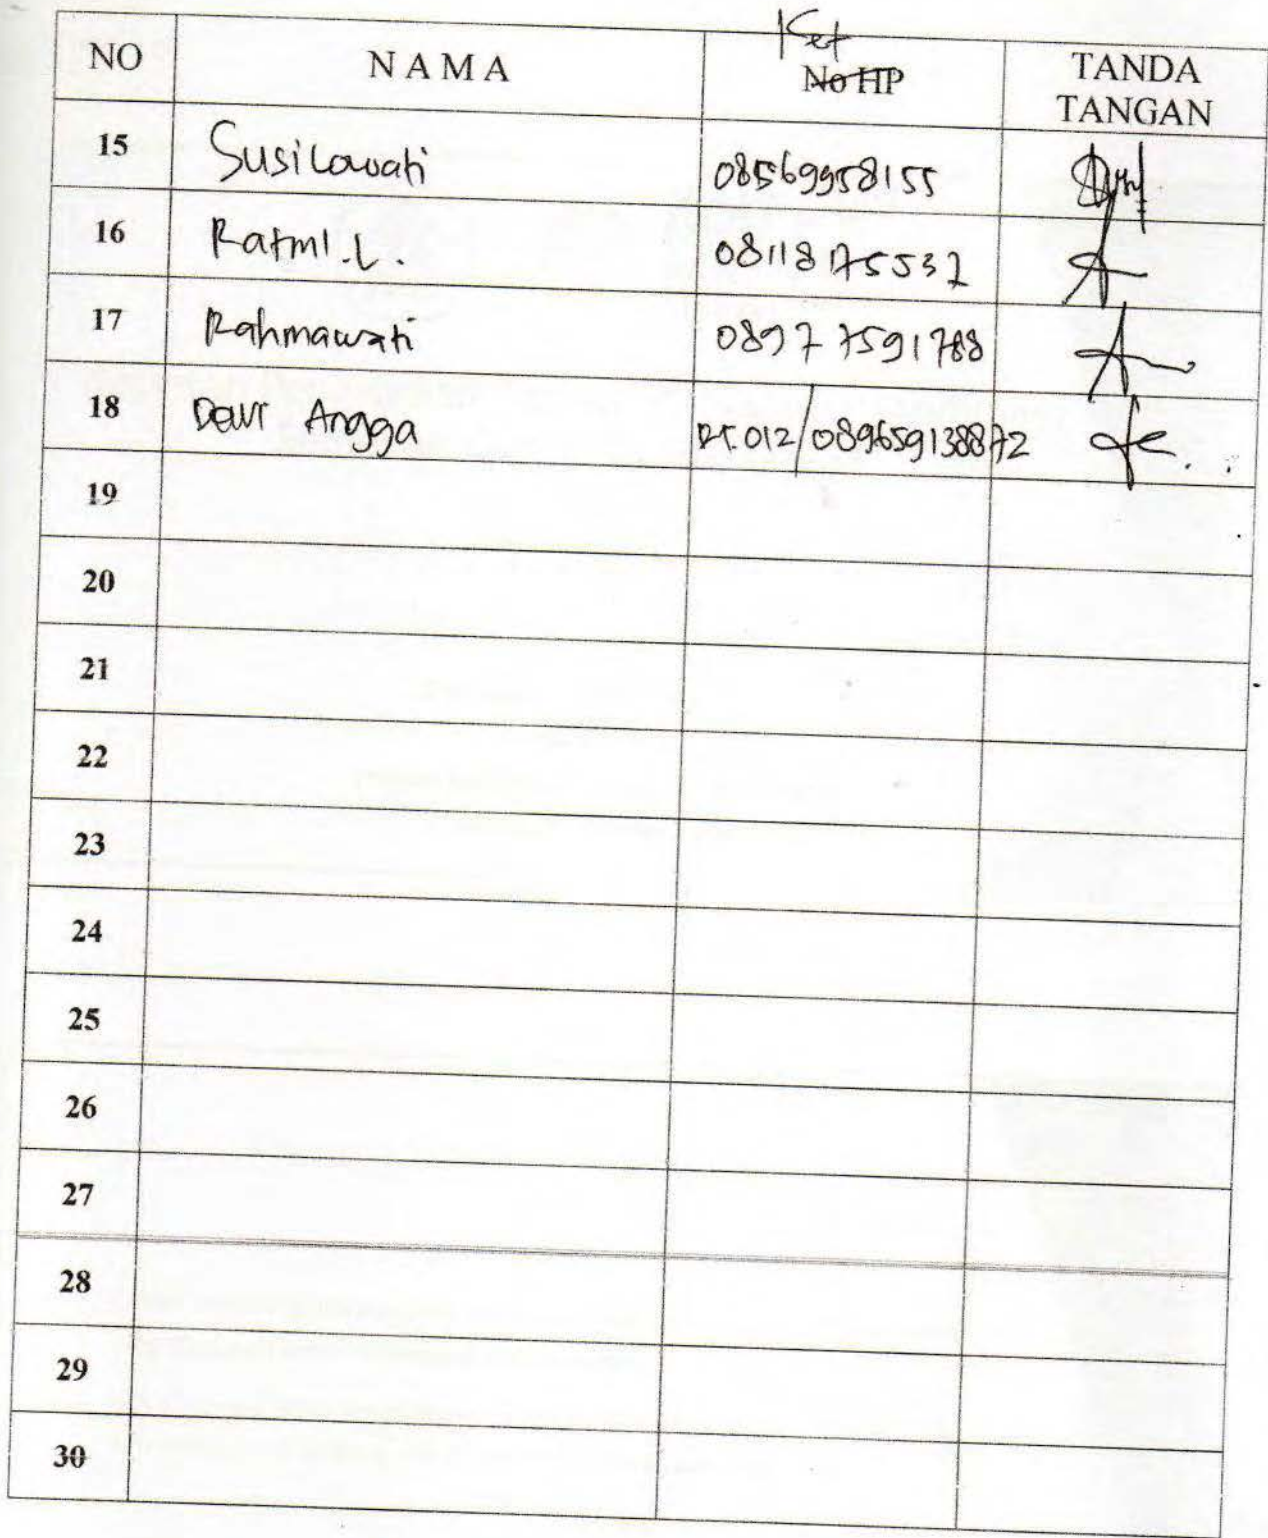 NO NAMA Ket No HP TANDA TANGAN
15 Susilowati 08569958155
16 Ratmi.L. 08118875537
17 Rahmawati 08977591788
18 Dewi Angga RT.012/089659138872
19
20
21
22
23
24
25
26
27
28
29
30